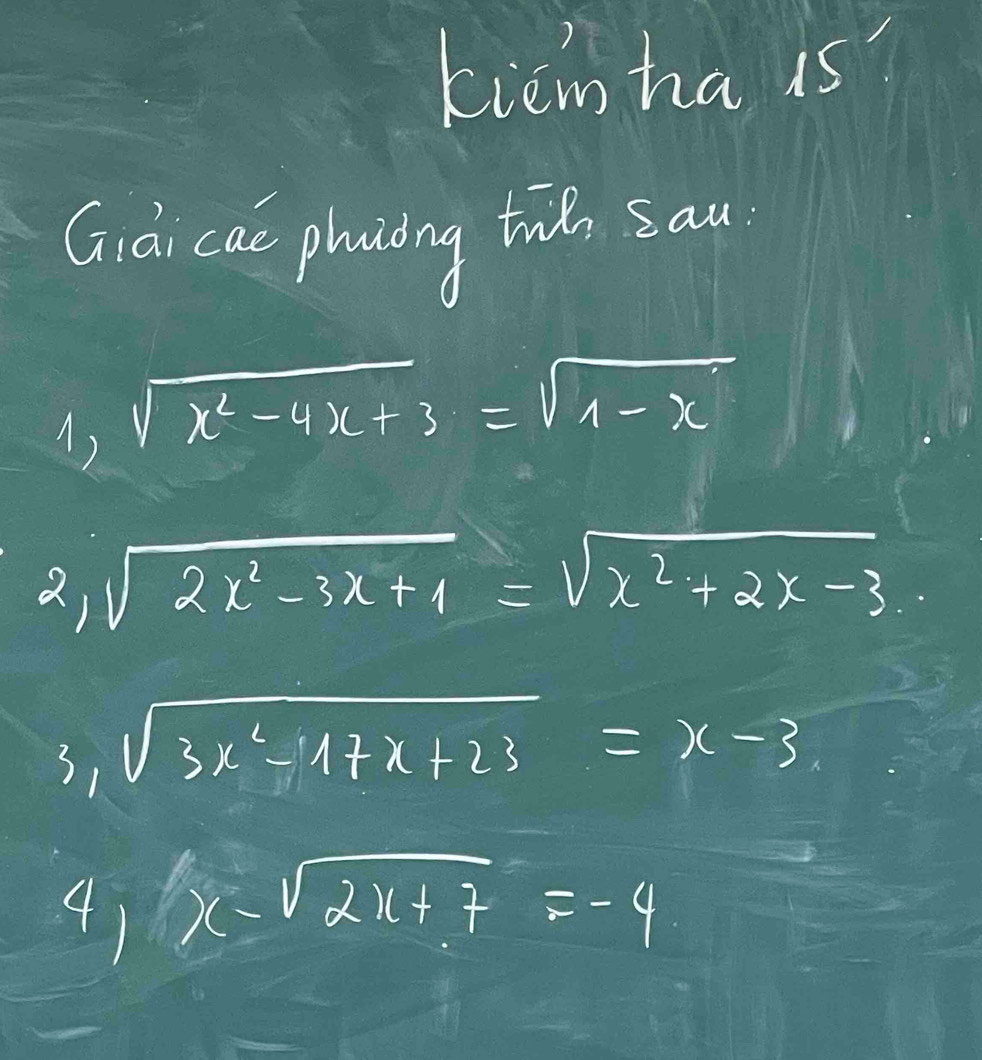 Kiểm tra 15'
Giải các phương trình sau:
1, √(x² - 4x + 3) = √(1 - x)
2, √(2x² - 3x + 1) = √(x² + 2x - 3)
3, √(3x² - 17x + 23) = x - 3
4, x - √(2x + 7) = -4